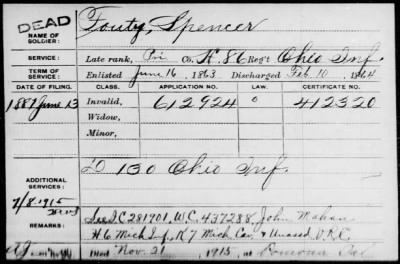 DEAD
NAME OF SOLDIER: Fouty, Spencer
SERVICE: Late rank, Pri Co. K. 86 Reg't Ohio Inf.
TERM OF SERVICE: Enlisted June 16, 1863 Discharged Feb. 10, 1864
DATE OF FILING. CLASS. APPLICATION NO. LAW. CERTIFICATE NO.
1887 June 13 Invalid, 612924 0 412320
Widow,
Minor,
D 130 Ohio Inf.
ADDITIONAL SERVICES:
7/8.1915
REMARKS: See I C 281901, W.C. 437288, John Mahan
H 6 Mich Inf, K 7 Mich Cav. & Unassd V.R.C.
Died Nov. 21, 1915, at Pomona Cal